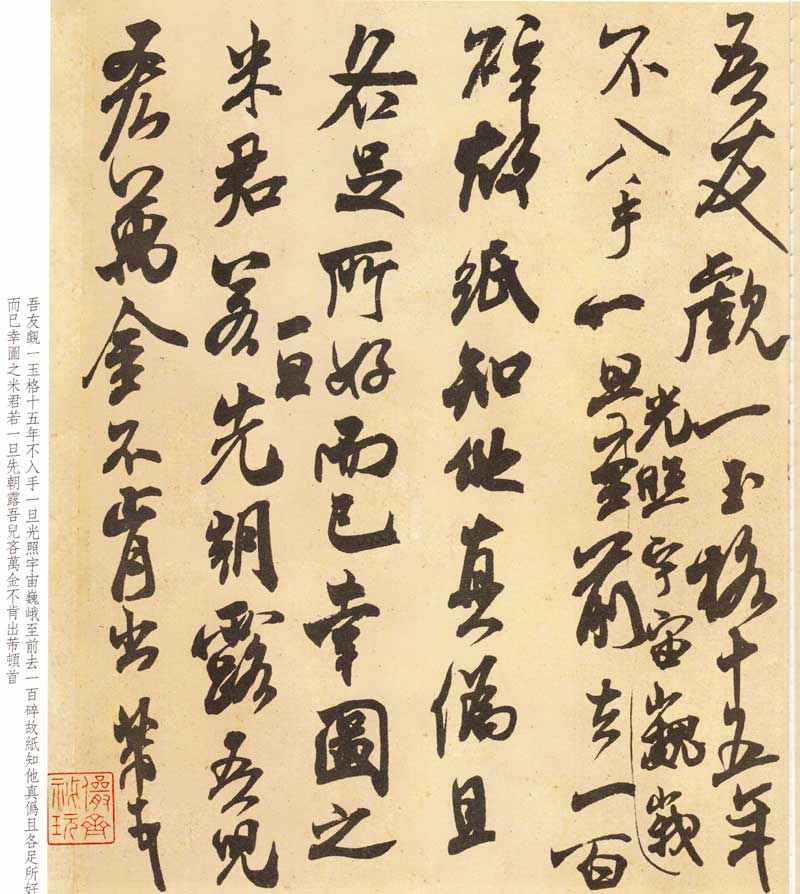 吾友覷一玉格十五年
光照宇宙巍峨
不入手一旦至前去一百
碎故紙知他真偽且
各足所好而已幸圖之
一旦
米君若先朝露吾兒
吝萬金不肯出芾頓首
儼齋
秘玩
吾友覷一玉格十五年不入手一旦光照宇宙巍峨至前去一百碎故紙知他真僞且各足所好
而已幸圖之米君若一旦先朝露吾兒吝萬金不肯出芾頓首